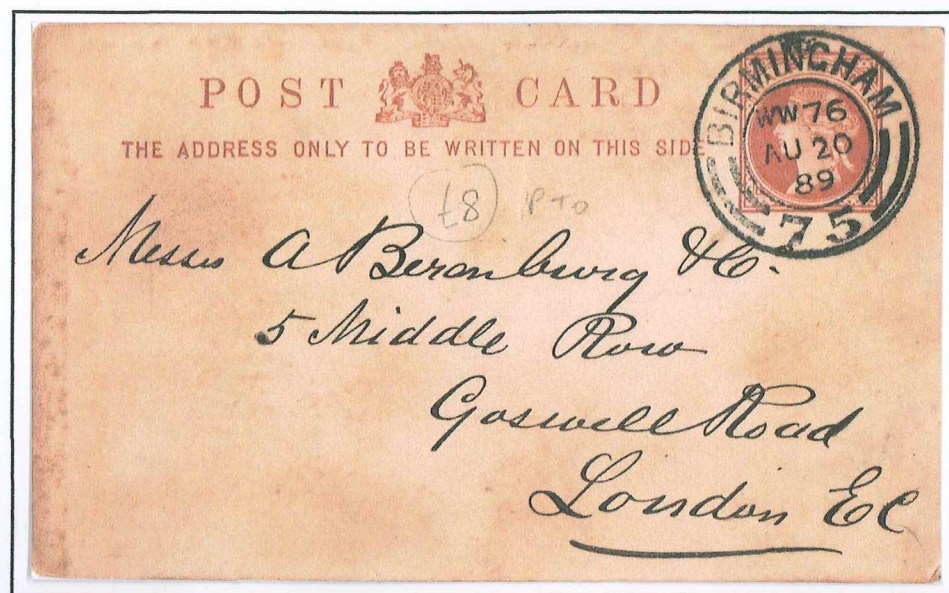 POST CARD
THE ADDRESS ONLY TO BE WRITTEN ON THIS SIDE
BIRMINGHAM
WW 76
AU 20
89
75
£8 PTO
Messrs A Berenburg & Co.
5 Middle Row
Goswell Road
London EC